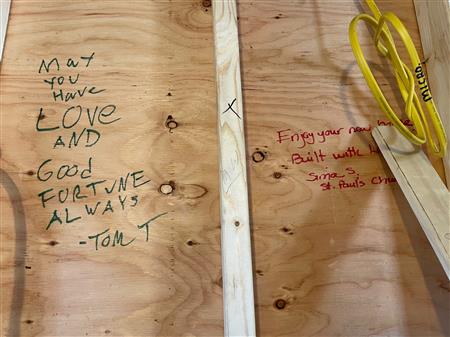 May
You
Have
LOVE
AND
Good
FORTUNE
ALWAYS
-TOM T
X
Enjoy your new
Built with
St. Paul's
MICRO